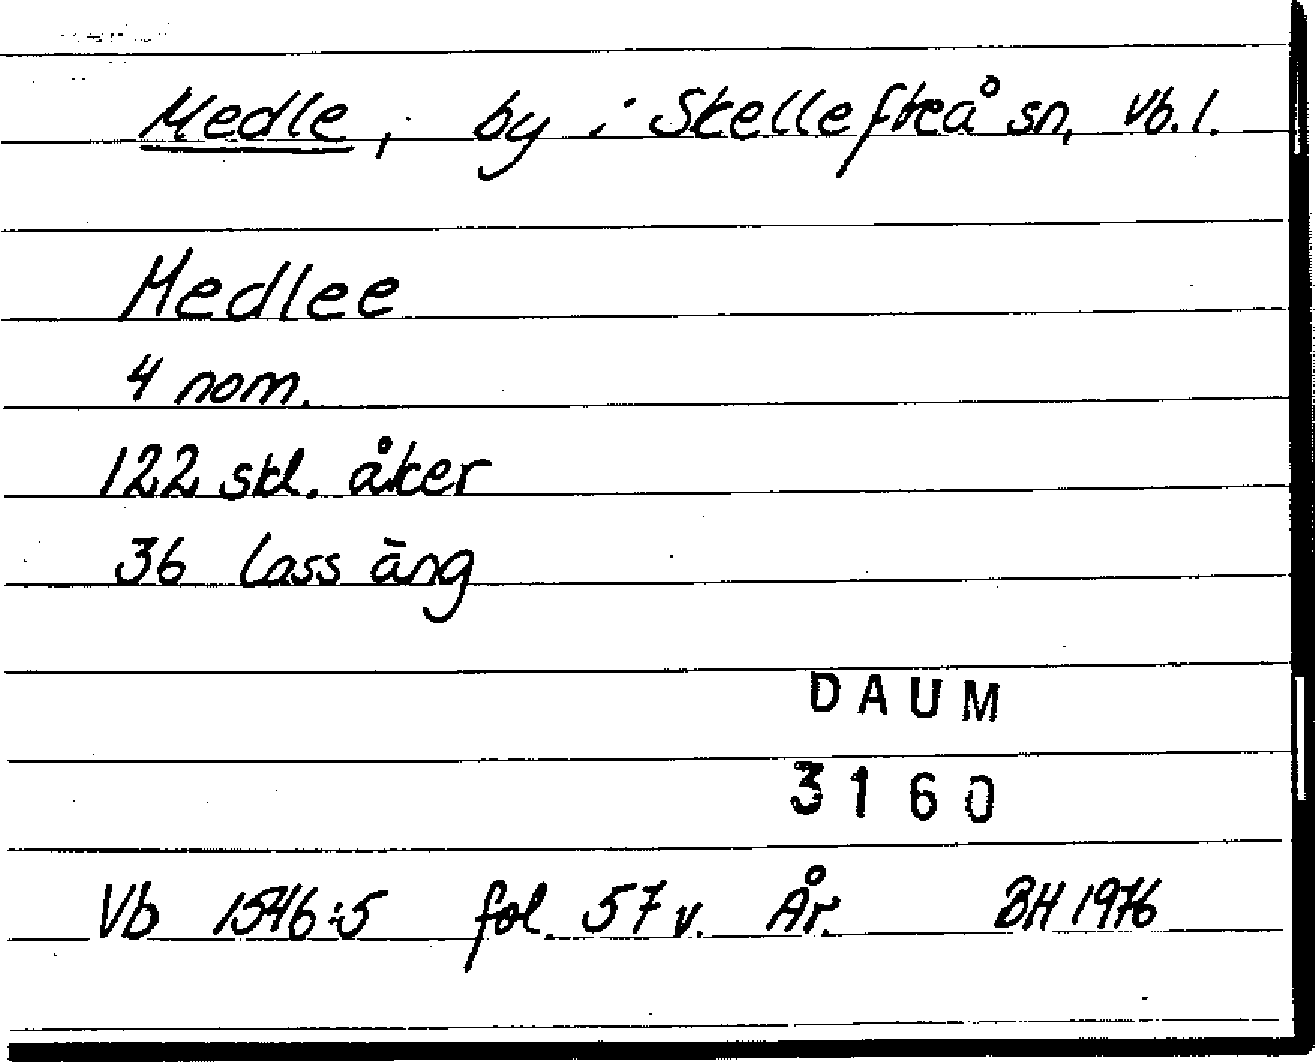 Medle, by i Skellefteå sn, Vb. l.
Medlee
4 nom.
122 skl. åker
36 lass äng
DAUM
3160
Vb 1546:5 fol. 57 v. År. BH 1976